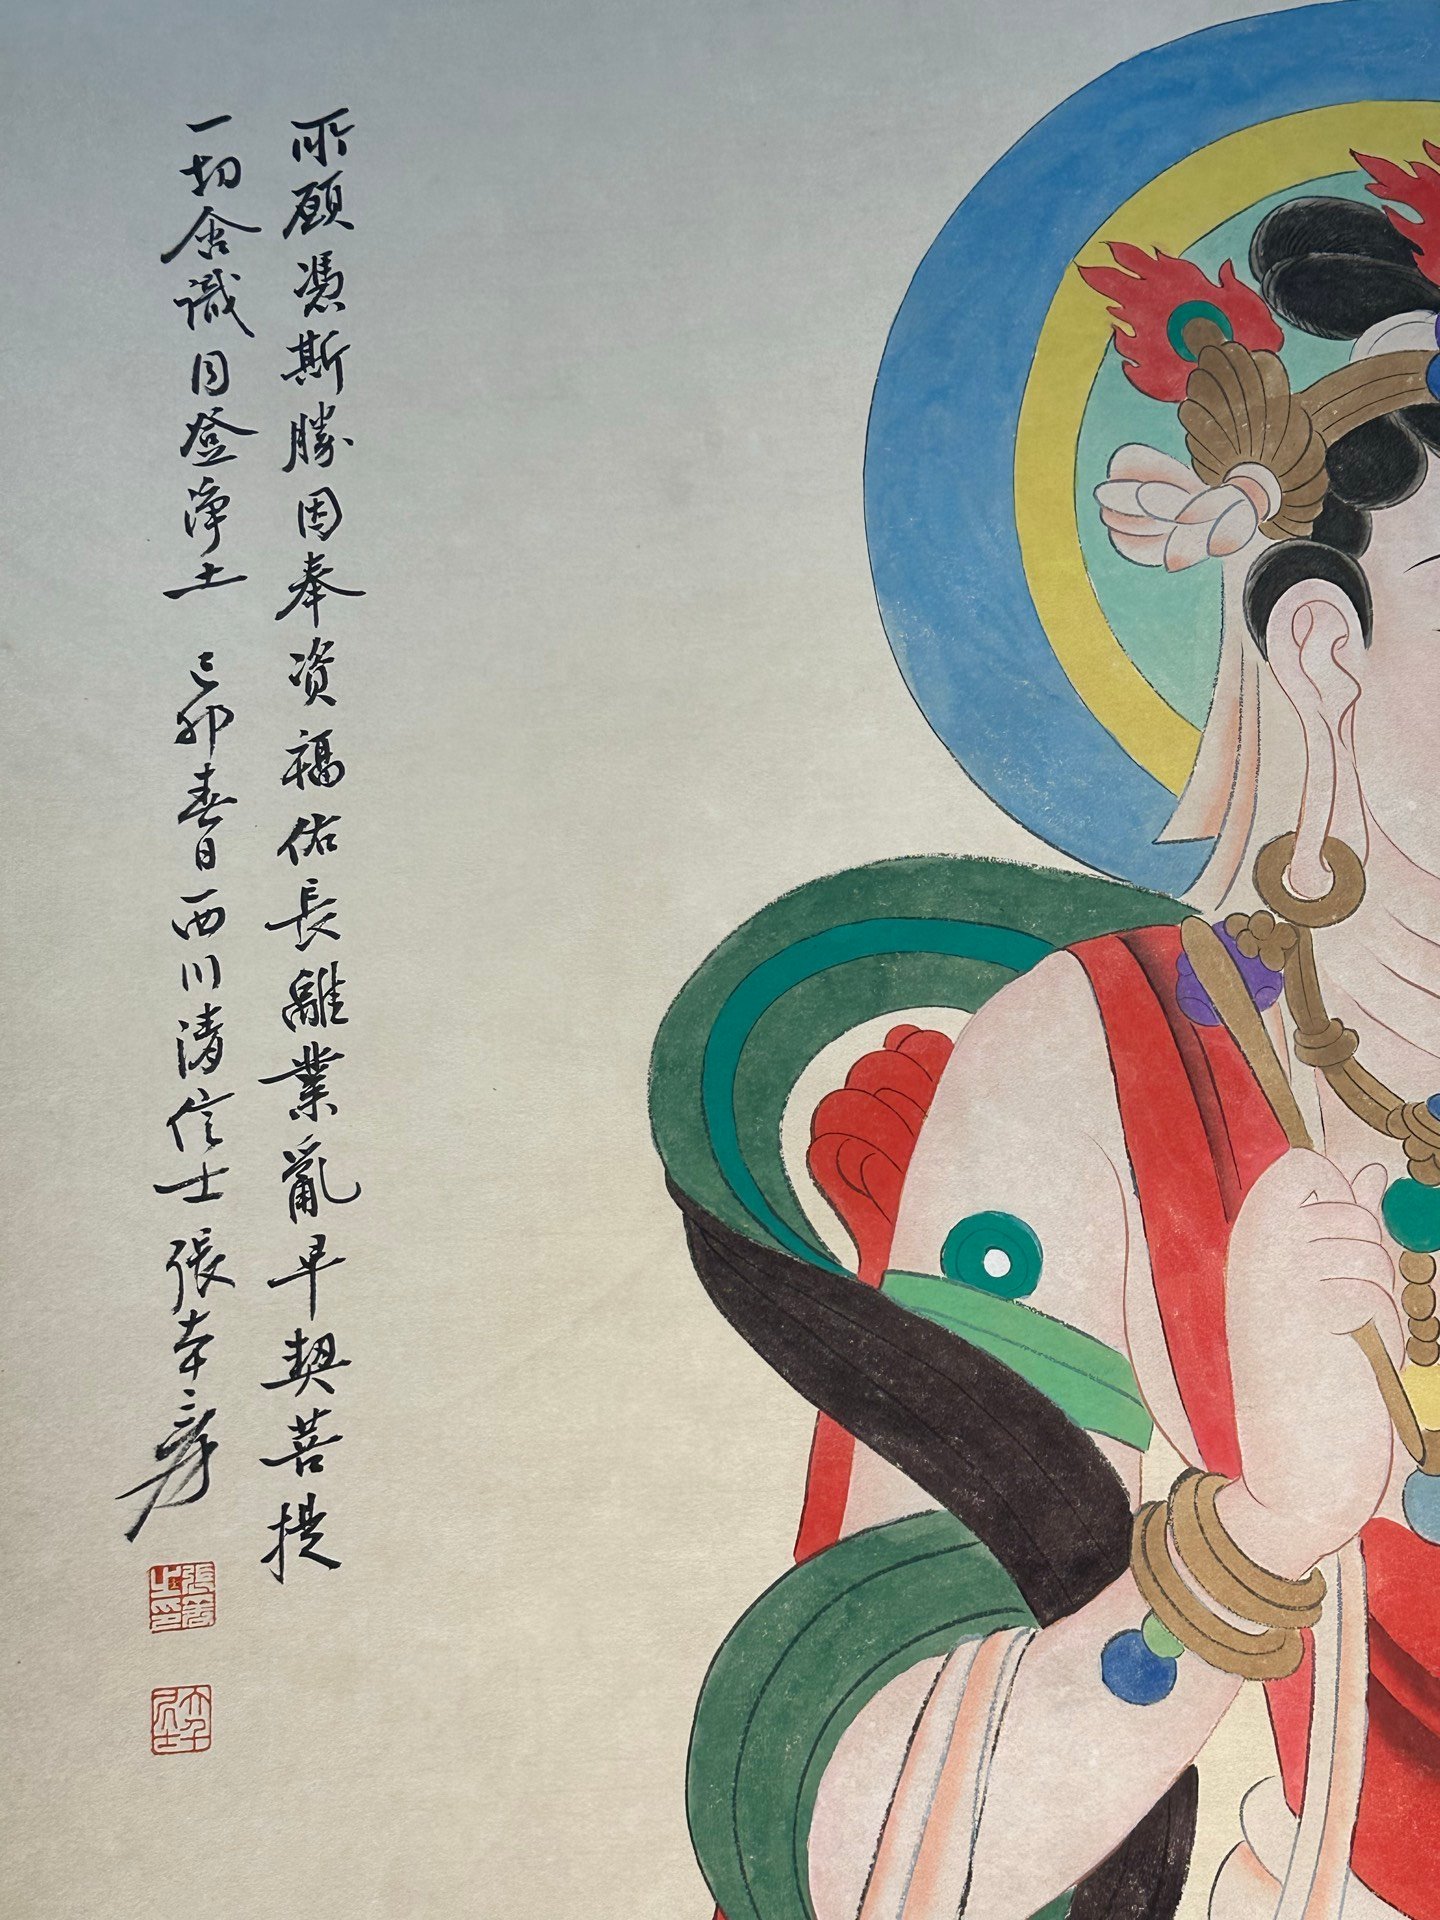 所願憑斯勝因奉資福佑長離業亂早契菩提
一切含識同登淨土 己卯春日西川清信士張大千爰
張爰之印
大千居士